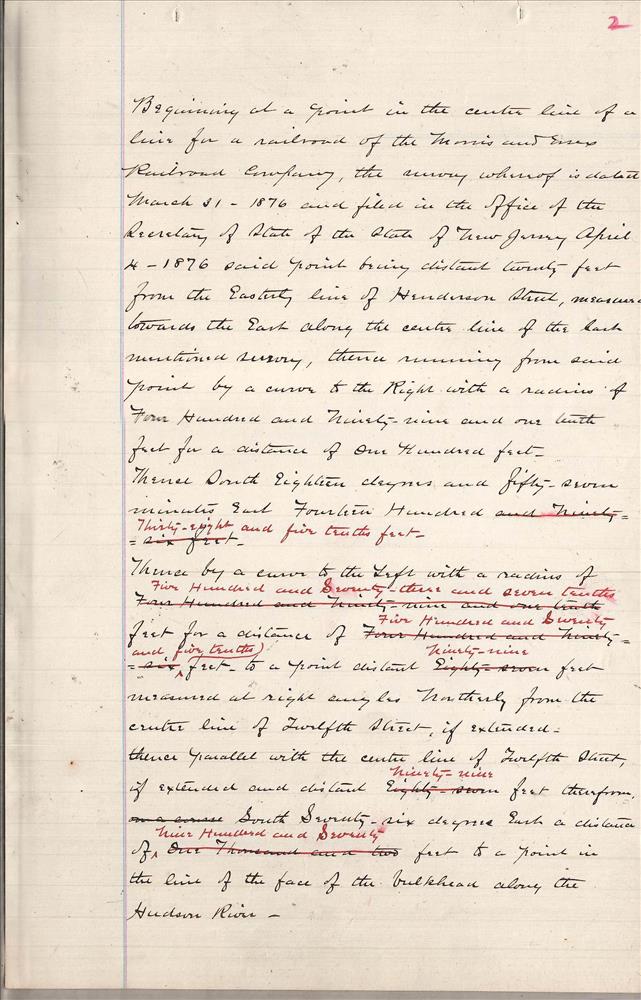 2
Beginning at a point in the centre line of a
line for a railroad of the Morris and Essex
Railroad Company, the survey whereof is dated
March 31 - 1876 and filed in the Office of the
Secretary of State of the State of New Jersey April
4 - 1876 said point being distant twenty feet
from the Easterly line of Henderson Street, measured
towards the East along the centre line of the last
mentioned survey, thence running from said
point by a curve to the Right with a radius of
Four Hundred and Ninety-nine and one tenth
feet for a distance of One Hundred feet -
Thence South Eighteen degrees and fifty-seven
minutes East Fourteen Hundred and Ninety=
Thirty-eight and five tenths feet -
= six feet -
Thence by a curve to the Left with a radius of
Five Hundred and Seventy-three and seven tenths
Four Hundred and Ninety-nine and one tenth
Five Hundred and Seventy
feet for a distance of Four Hundred and Ninety=
and five tenths) Ninety-nine
= six feet - to a point distant Eighty-seven feet
measured at right angles Northerly from the
centre line of Twelfth Street, if extended =
thence parallel with the centre line of Twelfth Street,
Ninety-nine
if extended and distant Eighty-seven feet therefrom,
on a course South Seventy-six degrees East a distance
Nine Hundred and Seventy
of One Thousand and two feet to a point in
the line of the face of the bulkhead along the
Hudson River -